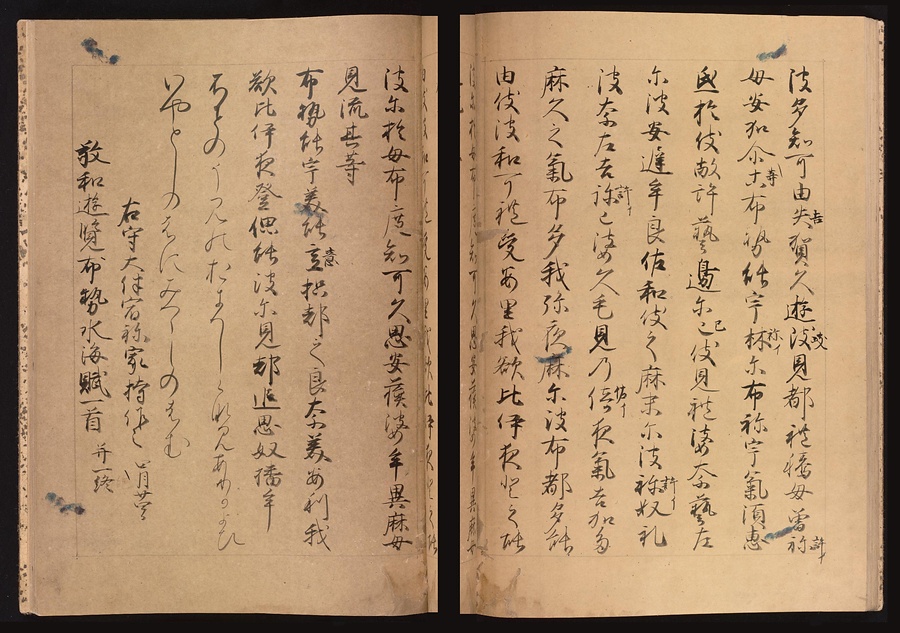 波多知可由失賀久遊波見都礼騰母曽祢
母安加尒等布勢能宇林尓布祢宇氣須恵
氐於伎敝許藝邊尓己伎見礼婆奈藝左
尓波安遅牟良佐和伎之麻未尓波祢奴礼
波奈左吉祢己婆久毛見乃佐夜氣吉加多
麻久之氣布多我弥夜麻尓波布都多能
由伎波和可礼受安里我欲比伊夜登之能
波尓於母布度知可久思安蘓婆牟異麻母
見流其等
布勢能宇美能意枳都之良奈美安利我
欲比伊夜登偲能波尓見都追思奴播牟
ふせのうみのおきつしらなみありかよひ
いやとしのはにみつしのはむ
右守大伴宿祢家持作之
敬和遊覧布勢水海賦一首 并一絶